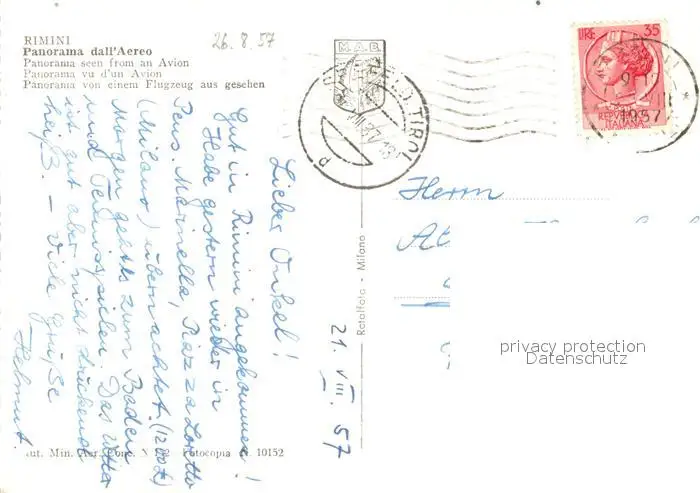 RIMINI
Panorama dall'Aereo
Panorama seen from an Avion
Panorama vu d'un Avion
Panorama von einem Flugzeug aus gesehen
26.8.57
M. A. B.
TIROL
LIRE 35
REPVBBLICA
ITALIANA
1957
Lieber Onkel!
Gut in Rimini angekommen!
Habe gestern wieder in
Pens. Marinella, Piazza Loretto
(Milano) übernachtet. (1200 £)
Morgen gehts zum Baden
und Tennisspielen. Das Wetter
ist gut aber nicht drückend
heiß. – Viele Grüße
Helmut
21. VIII. 57
Rotalfoto - Milano
Herrn
privacy protection
Datenschutz
Aut. Min. Aer. Conc. N Fotocopia 10152